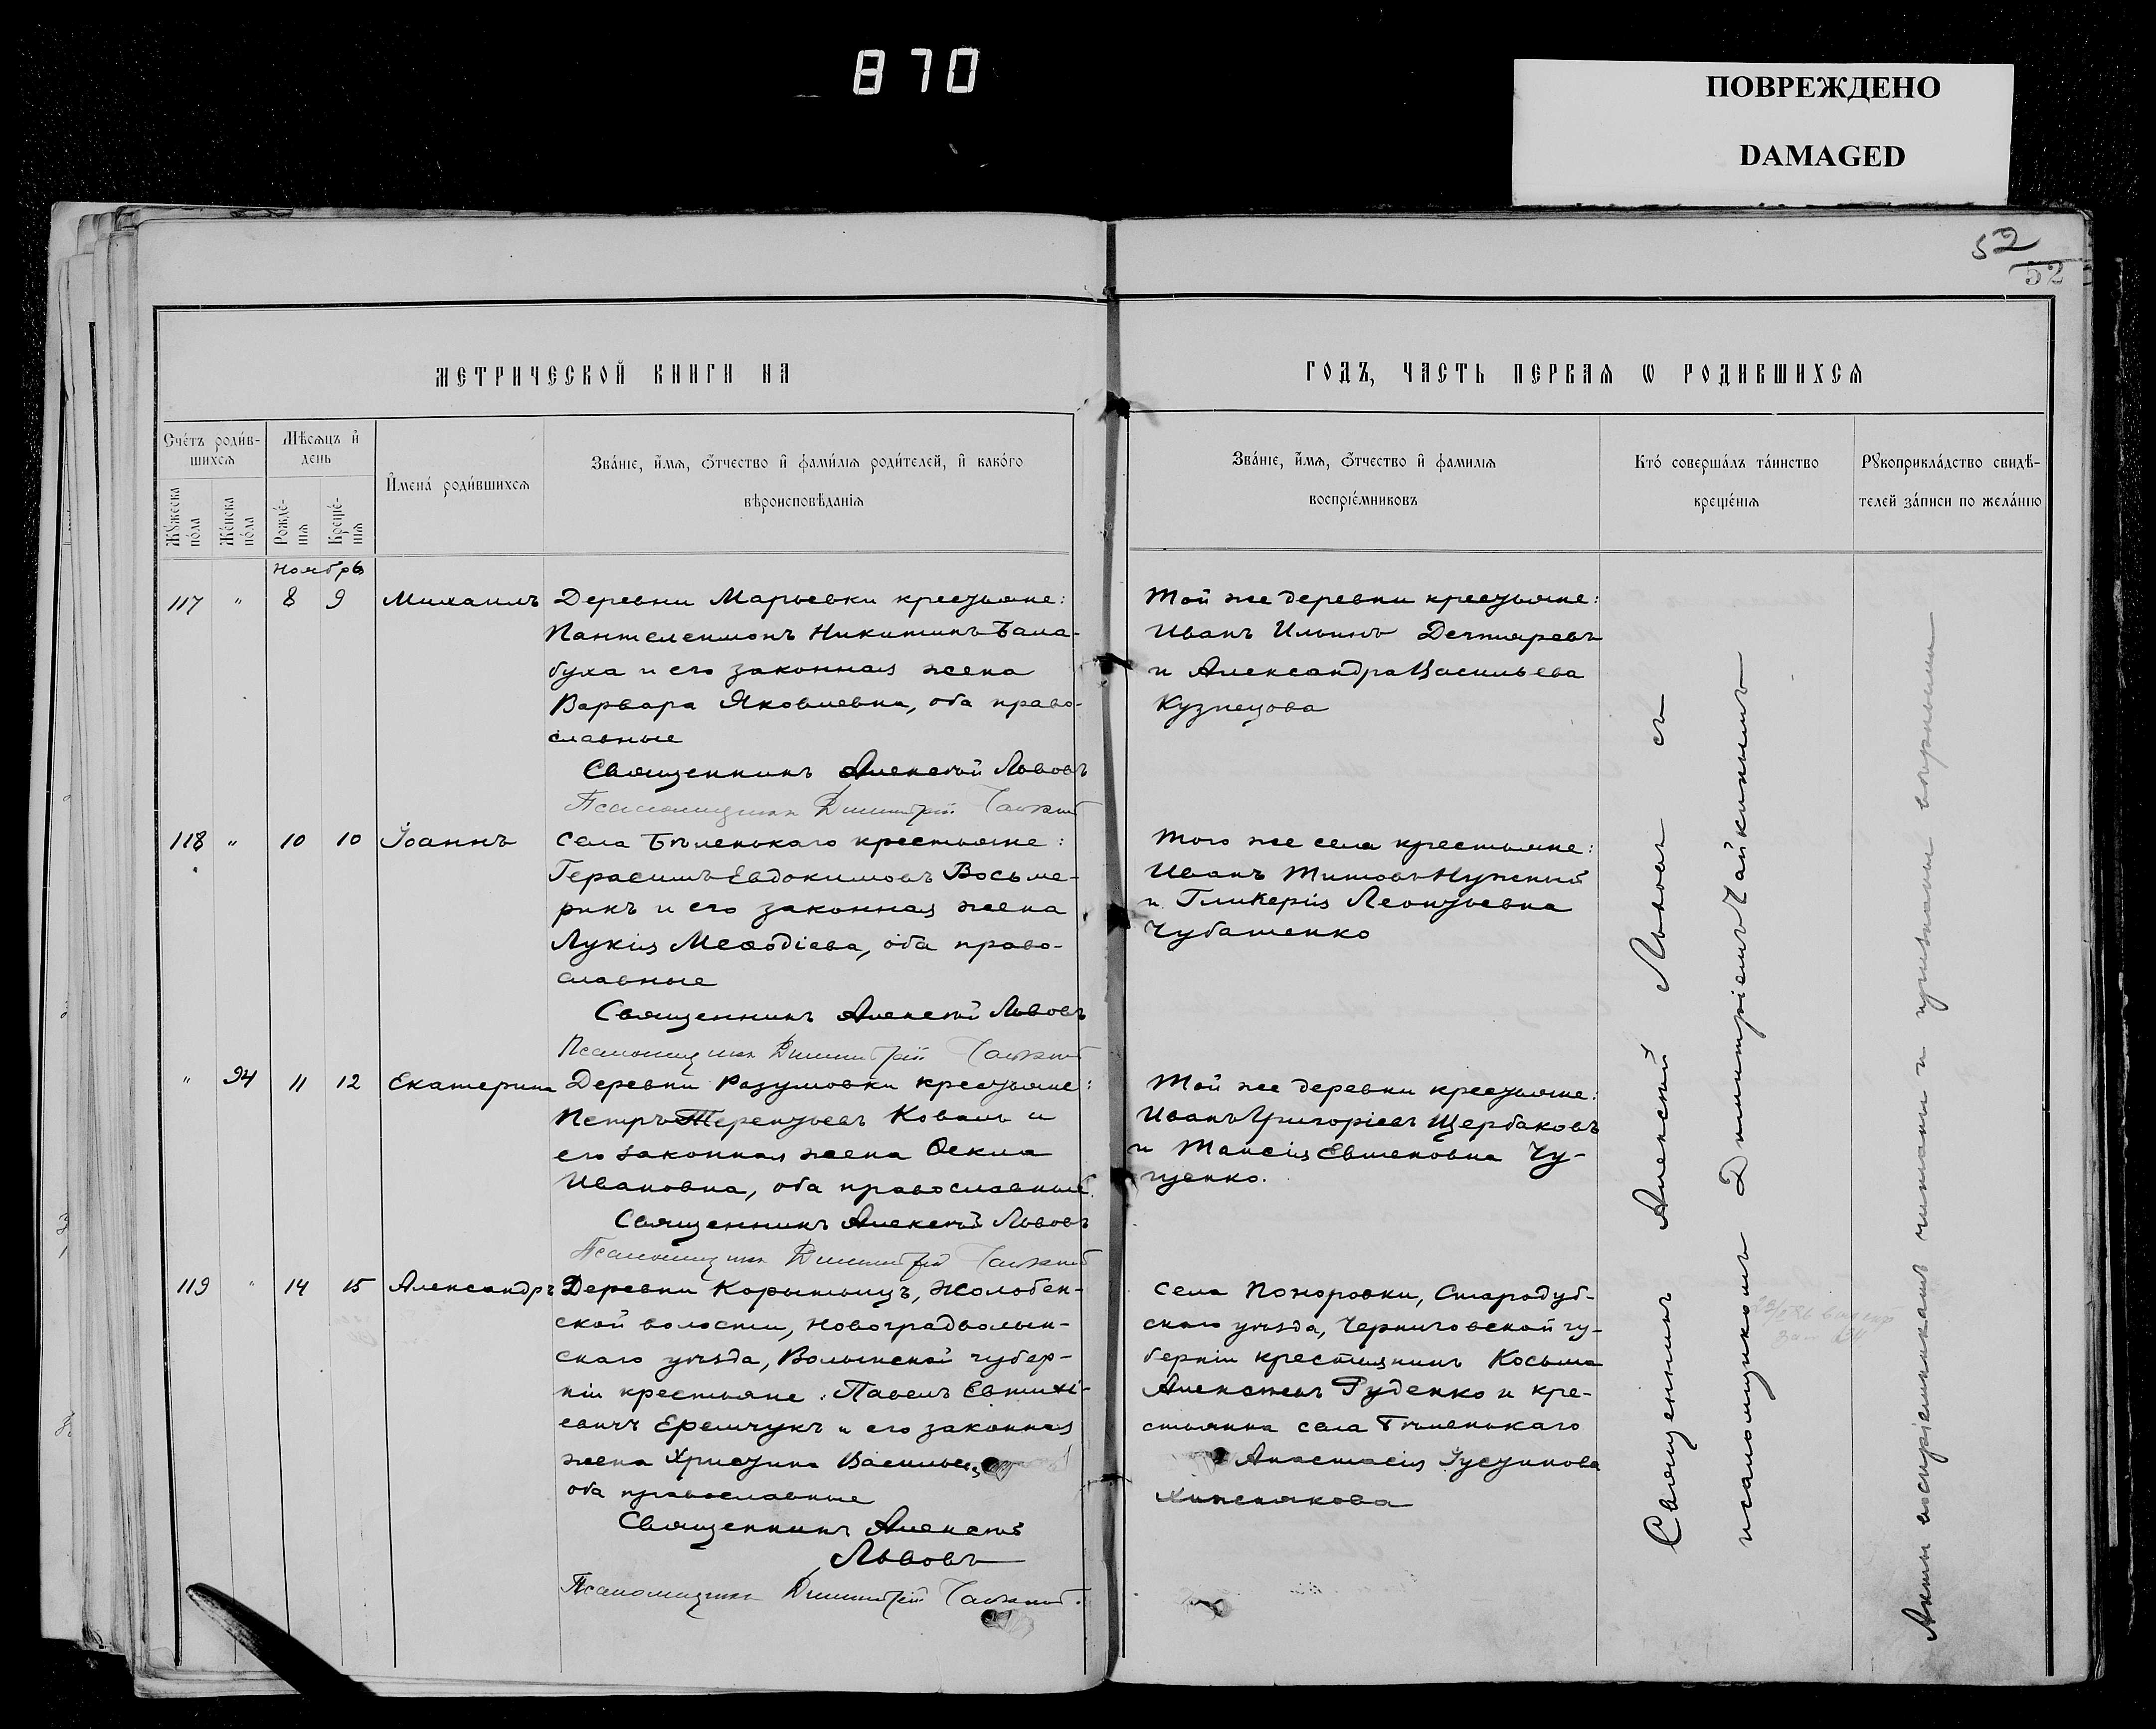 870
ПОВРЕЖДЕНО
DAMAGED
52
52
МЕТРИЧЕСКОЙ КНИГИ НА
ГОДЪ, ЧАСТЬ ПЕРВАЯ Ѡ РОДИВШИХСЯ
Счетъ родив-
шихся
Мужеска
пола
Женска
пола
Мѣсяцъ и
день
Рожде-
нія
Креще-
нія
Имена родившихся
Званіе, имя, отчество и фамилія родителей, и какого
вѣроисповѣданія
Званіе, имя, отчество и фамилія
воспріемниковъ
Кто совершалъ таинство
крещенія
Рукоприкладство свидѣ-
телей записи по желанію
Ноябрь
117 " 8 9 Михаилъ
Деревни Марьевки крестьяне:
Пантелеимонъ Никитинъ Бала-
буха и его законная жена
Варвара Яковлевна, оба право-
славные
Священникъ Алексѣй Львовъ
Псаломщикъ Димитрій
Той же деревни крестьяне:
Иванъ Ильинъ Дегтяревъ
и Александра Васильева
Кузнецова
118 " 10 10 Іоаннъ
Села Бѣленькаго крестьяне:
Герасимъ Евдокимовъ Восьме-
рикъ и его законная жена
Лукія Меѳодіева, оба право-
славные
Священникъ Алексѣй Львовъ
Псаломщикъ Димитрій
Того же села крестьяне:
Иванъ Титовъ Нужный
и Гликерія Леонтьевна
Чубашенко
" 94 11 12 Екатерина
Деревни Разумовки крестьяне:
Петръ Терентьевъ Коваль и
его законная жена Ѳекла
Ивановна, оба православные.
Священникъ Алексѣй Львовъ
Псаломщикъ Димитрій
Той же деревни крестьяне:
Иванъ Григоріевъ Щербаковъ
и Таисія Евменовна Чу-
щенко.
119 " 14 15 Александръ
Деревни Корытыщъ, Жолобен-
ской волости, Новоградволын-
скаго уѣзда, Волынской губер-
ніи крестьяне: Павелъ Евтихі-
евичъ Еремчукъ и его законная
жена Христина
оба православные
Священникъ Алексѣй
Львовъ
Псаломщикъ Димитрій
Села Понуровки, Стародуб-
скаго уѣзда, Черниговской гу-
берніи крестьянинъ Косьма
Алексѣевъ Руденко и кре-
стьянка села Бѣленькаго
Анастасія Іустинова
Хижнякова
Священникъ Алексѣй Львовъ съ
псаломщикомъ Димитріемъ Чайкинымъ
Акты воспріемниками читаны и признаны вѣрными